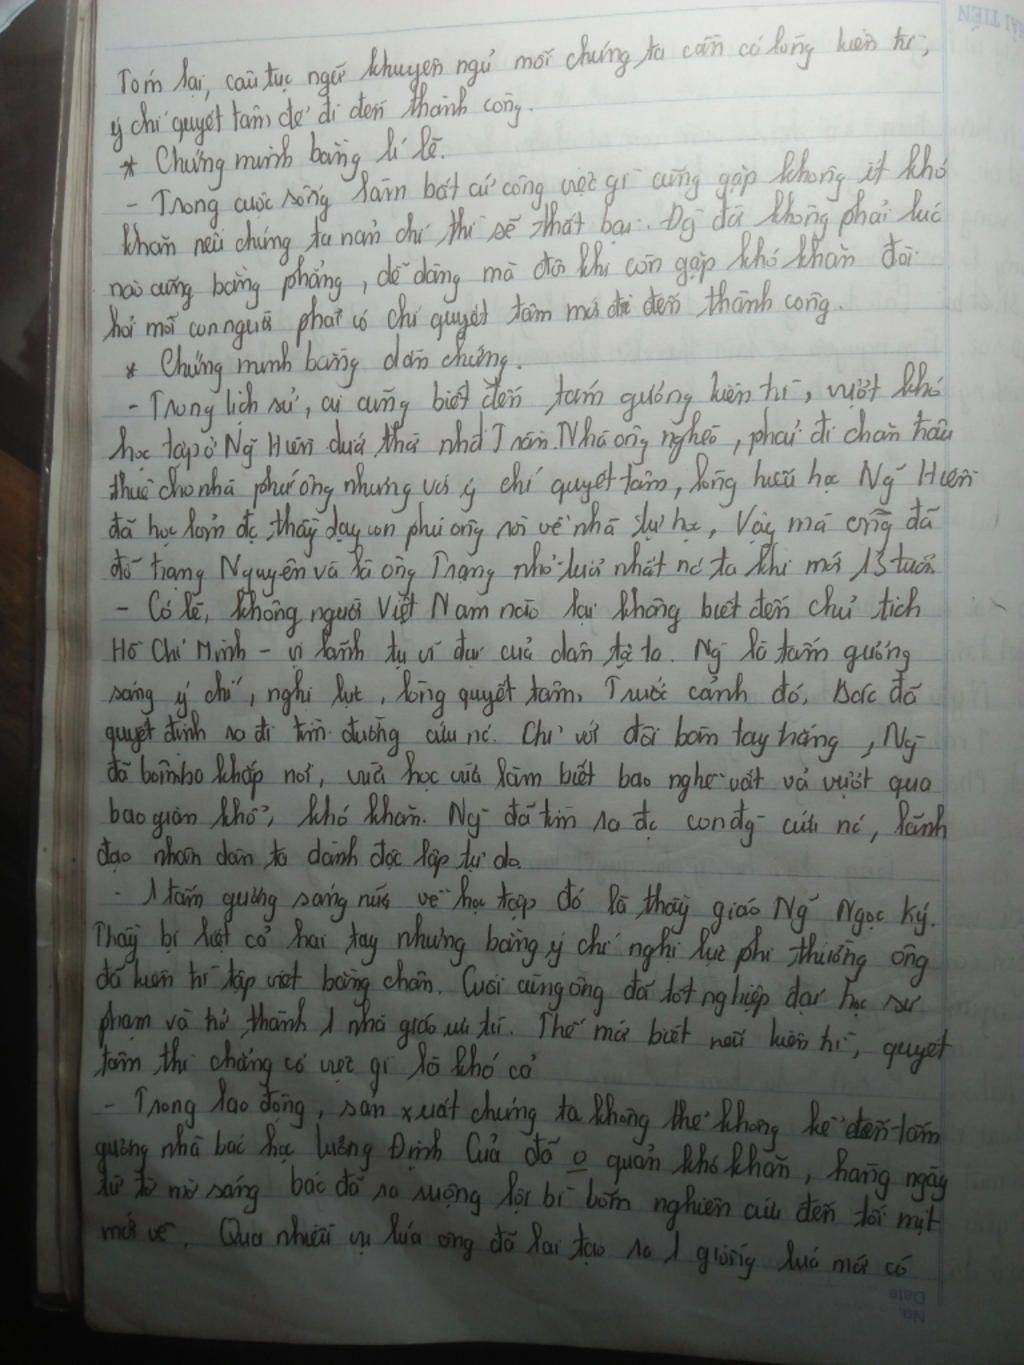 Tóm lại, câu tục ngữ khuyên ngủ mỗi chúng ta cần có lòng kiên trì,
ý chí quyết tâm để đi đến thành công.
* Chứng minh bằng lí lẽ.
- Trong cuộc sống làm bất cứ công việc gì cũng gặp không ít khó
khăn nếu chúng ta nản chí thì sẽ thất bại. Đg đời không phải lúc
nào cũng bằng phẳng, dễ dàng mà đôi khi còn gặp khó khăn đòi
hỏi mỗi con người phải có chí quyết tâm mới đi đến thành công.
* Chứng minh bằng dẫn chứng.
- Trong lịch sử, ai cũng biết đến tấm gương kiên trì, vượt khó
học tập ở Ng~ Hiền dưới thời nhà Trần. Nhà ông nghèo, phải đi chăn trâu
thuê cho nhà phú ông nhưng với ý chí quyết tâm, lòng hiếu học Ng~ Hiền
đã học lỏm đc thầy dạy con phú ông rồi về nhà tự học, Vậy mà ông đã
đỗ trạng Nguyên và là ông Trạng nhỏ tuổi nhất nc ta khi mới 13 tuổi.
- Có lẽ, không người Việt Nam nào lại không biết đến chủ tịch
Hồ Chí Minh - vị lãnh tụ vĩ đại của dân tộc ta. Ng` là tấm gương
sáng ý chí, nghị lực, lòng quyết tâm. Trước cảnh đó, Bác đã
quyết định ra đi tìm đường cứu nc. Chỉ với đôi bàn tay trắng, Ng`
đã bôn ba khắp nơi, vừa học vừa làm biết bao nghề vất vả vượt qua
bao gian khổ, khó khăn. Ng` đã tìm ra đc con đg` cứu nc, lãnh
đạo nhân dân ta dành độc lập tự do.
- 1 tấm gương sáng nữa về học tập đó là thầy giáo Ng~ Ngọc Ký.
Thầy bị liệt cả hai tay nhưng bằng ý chí nghị lực phi thường ông
đã kiên trì tập viết bằng chân. Cuối cùng ông đã tốt nghiệp đại học sư
phạm và trở thành 1 nhà giáo ưu tú. Thế mới biết nếu kiên trì, quyết
tâm thì chẳng có việc gì là khó cả
- Trong lao động, sản xuất chúng ta không thể không kể đến tấm
gương nhà bác học Lương Định Của đã o quản khó khăn, hàng ngày
từ tờ mờ sáng bác đã ra ruộng lội bì bõm nghiên cứu đến tối mịt
mới về. Qua nhiều vụ lúa ông đã lai tạo ra 1 giống lúa mới có
No.
Date